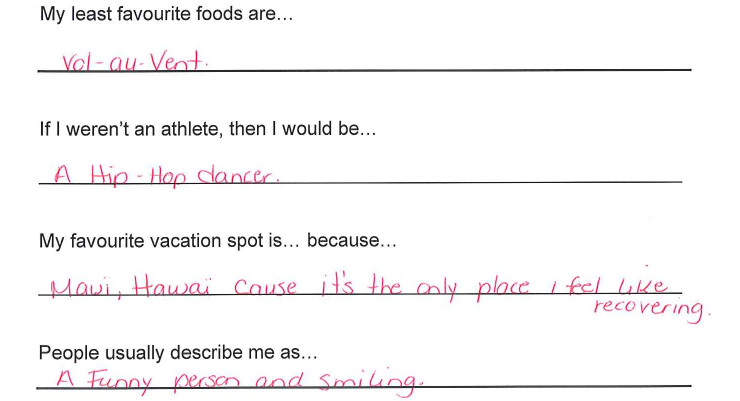 My least favourite foods are...
Vol-au-Vent.
If I weren't an athlete, then I would be...
A Hip-Hop dancer.
My favourite vacation spot is... because...
Maui, Hawai cause it's the only place i feel like
recovering.
People usually describe me as...
A Funny person and smiling.